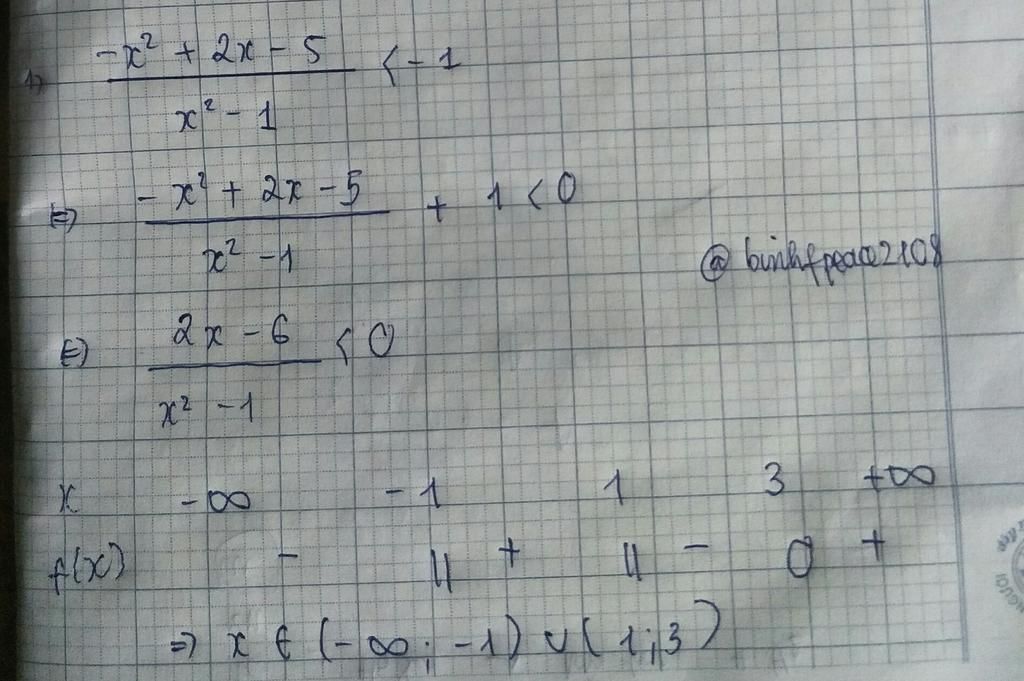 1) (-x² + 2x - 5)/(x² - 1) < -1
⇔ (-x² + 2x - 5)/(x² - 1) + 1 < 0
@binhfpeace2108
⇔ (2x - 6)/(x² - 1) < 0
x -∞ -1 1 3 +∞
f(x) - || + || - 0 +
⇒ x ∈ (-∞; -1) ∪ (1; 3)